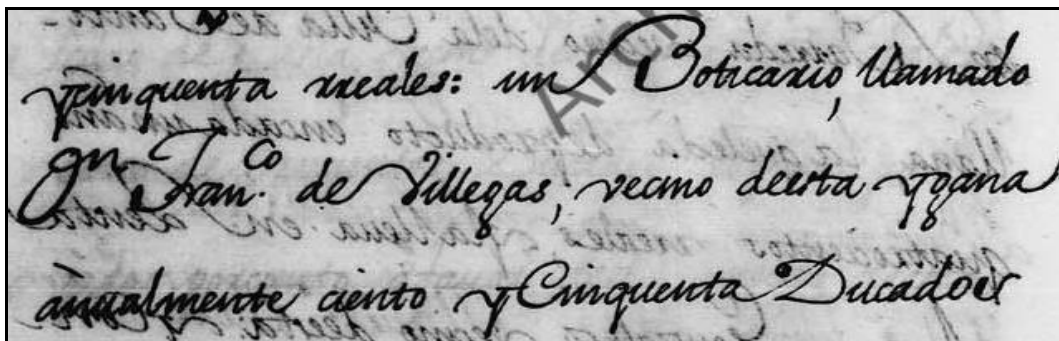 ycinquenta rreales: un Boticario, llamado
Dn. Fran.co de Villegas, vecino deesta ygana
anualmente ciento y Cinquenta Ducados